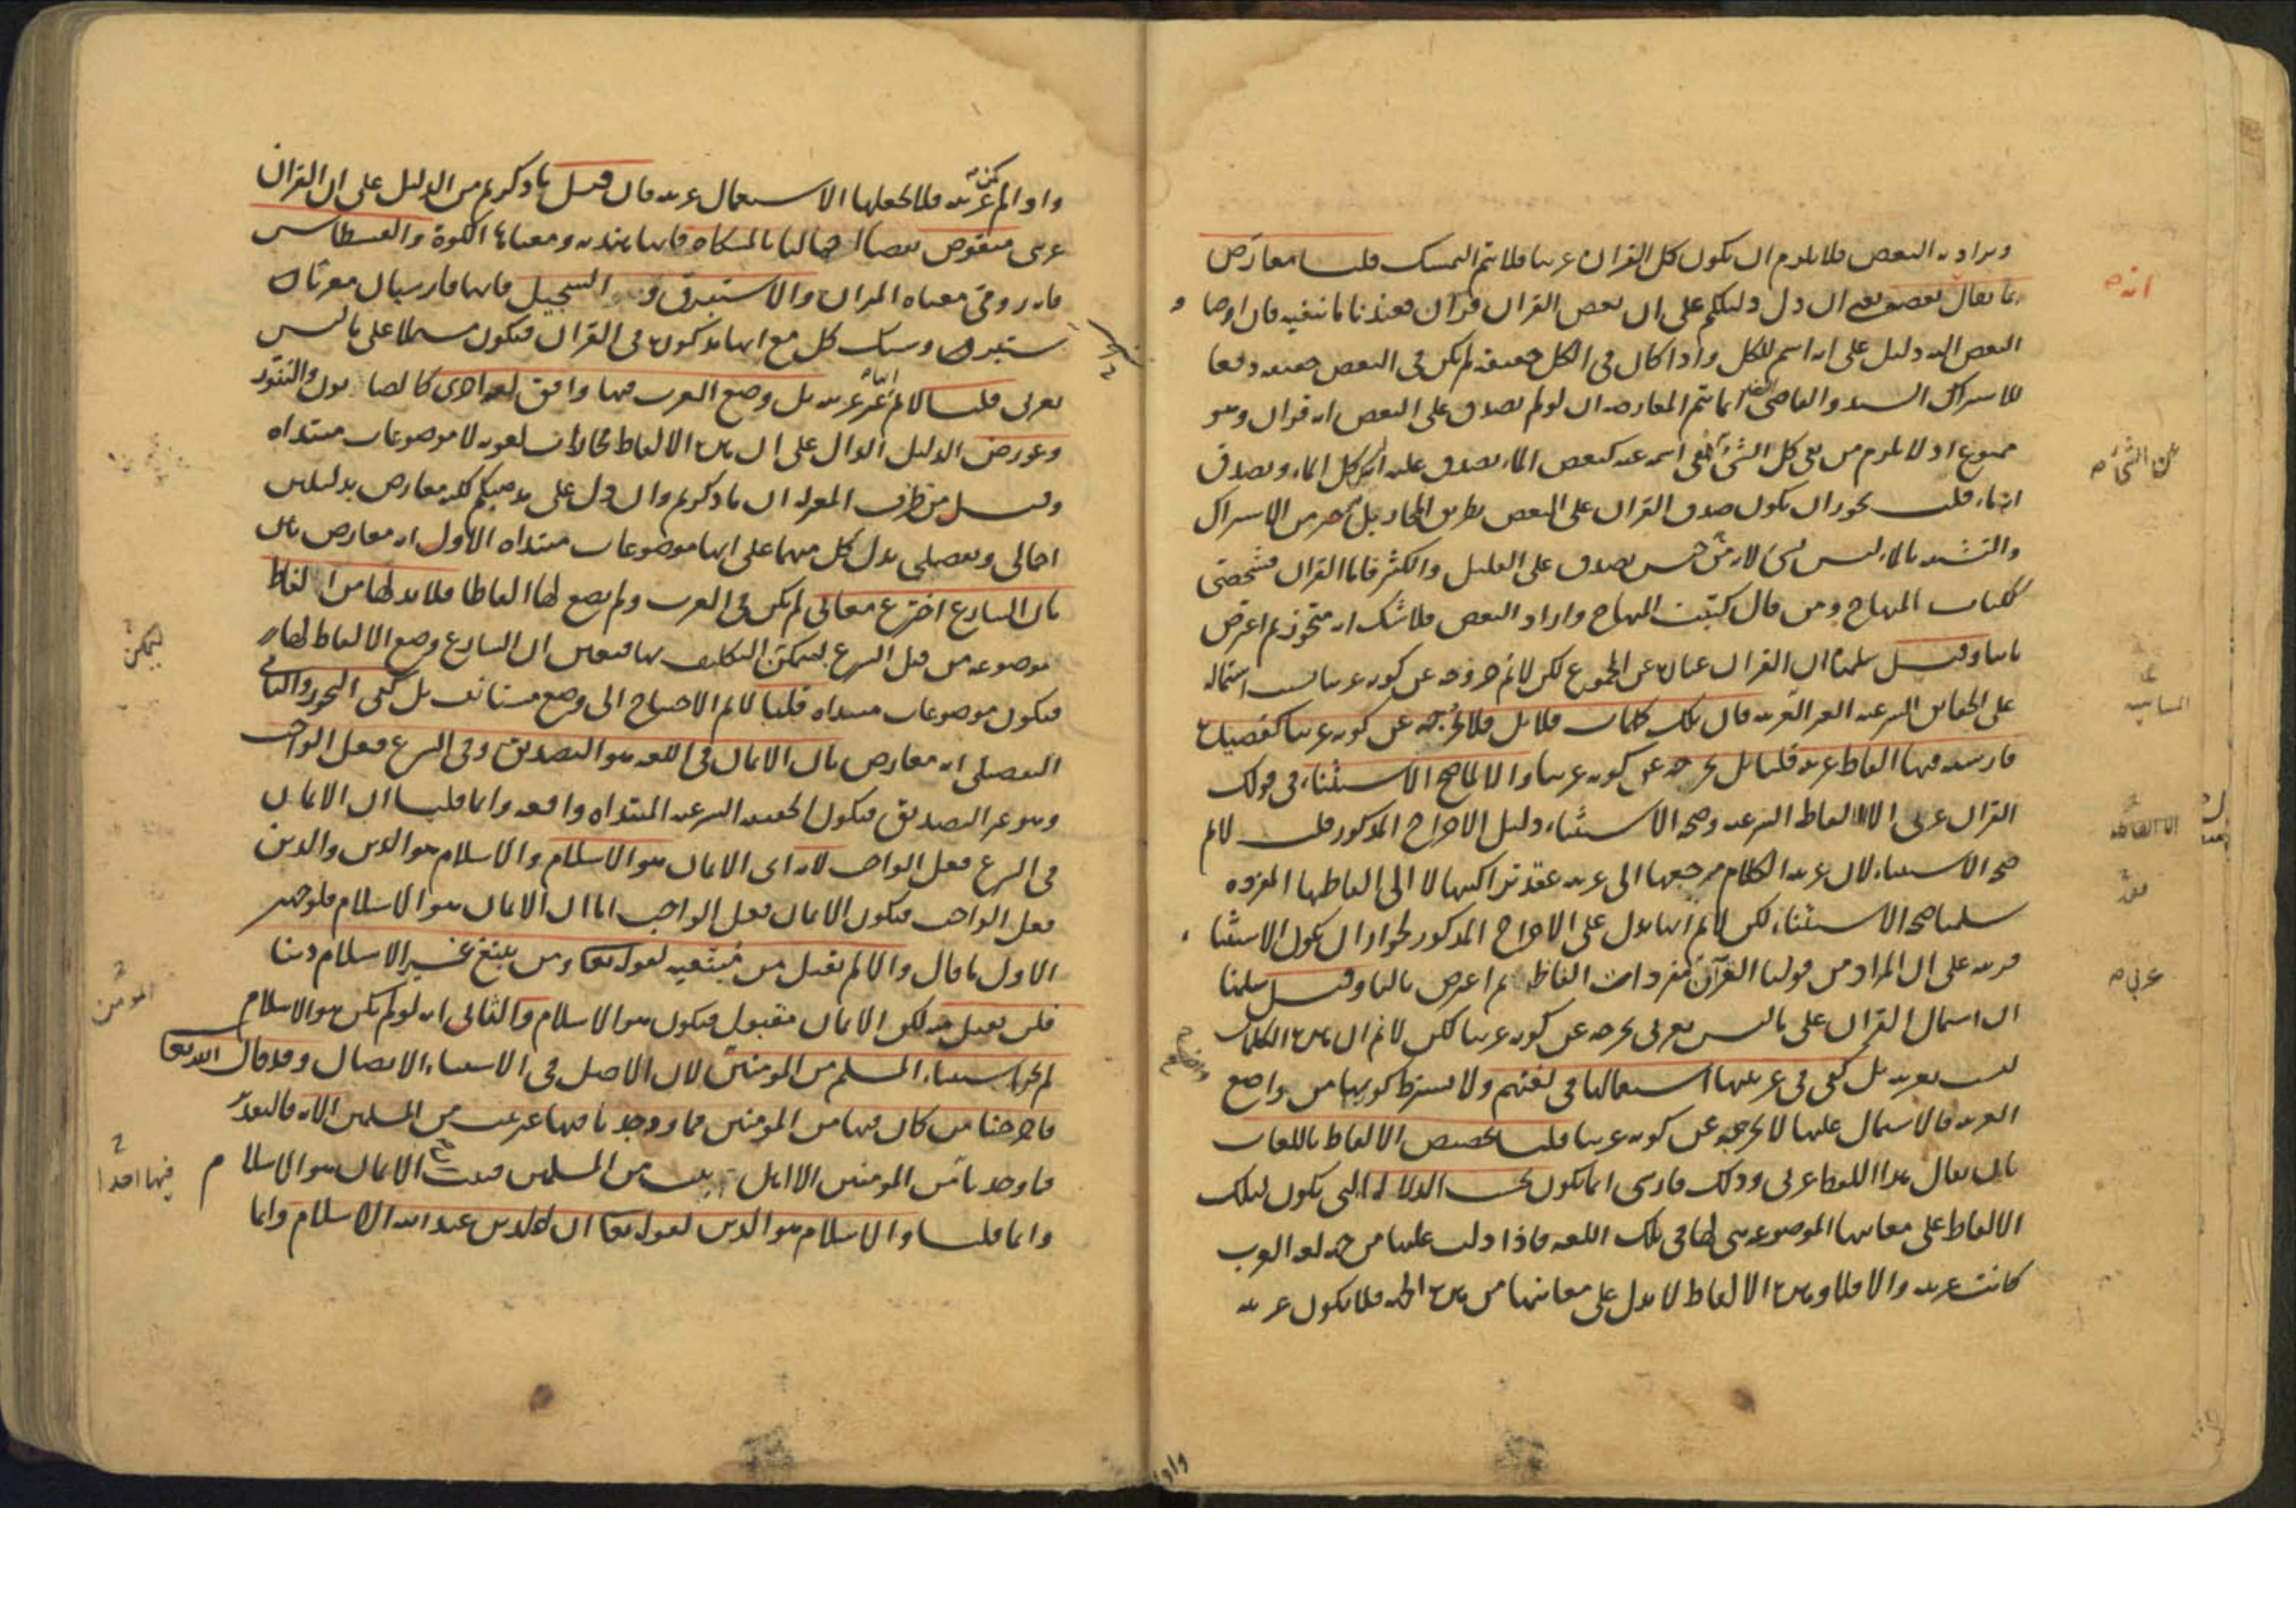 ويراد به البعض فلا يلزم ان يكون كل القران عربيا فلا يتم التمسك قلنا معارض
بما يقال بعضه يعنى ان دل دليلكم على ان بعض القران قران فعندنا ما ينفيه فان اوصا
البعض اليه دليل على انه اسم للكل واذا كان فى الكل حقيقة لم يكن فى البعض حقيقة دفعا
للاشتراك السيد والقاضى انما يتم المعارضة ان لو لم يصدق على البعض انه قران وهو
ممنوع اذ لا يلزم من نفى كل الشئ نفى اسمه عنه كبعض الماء يصدق عليه انه كل الماء ويصدق
انه ماء قلت يجوز ان يكون صدق القران على البعض بطريق المجاز بل خير من الاشتراك
والتشبيه بالماء ليس بشئ لانه جنس يصدق على القليل والكثير فاما القران فشخصى
ككتاب المنهاج ومن قال كتبت المنهاج واراد البعض فلا شك انه متجوز ثم اعترض
ثانيا وقيل سلمنا ان القران عبارة عن المجموع لكن لا نم خروجه عن كونه عربيا بسبب اشتماله
على الحقايق الشرعية الغير العربية فان تلك كلمات قلايل فلا تخرجه عن كونه عربيا كقصيدة
فارسية فيها الفاظ عربية قلنا بل يخرجه عن كونه عربيا والا لما صح الاستثناء فى قولك
القران عربى الا الالفاظ الشرعية وصحة الاستثناء دليل الاخراج المذكور قلت لا نم
صحة الاستثناء لان عربية الكلام مرجعها الى عربية عقد تراكيبها لا الى الفاظها المفردة
سلمنا صحة الاستثناء لكن لا نم انها تدل على الاخراج المذكور لجواز ان يكون الاستثنا
قرينة على ان المراد من قولنا القرآن مفردات الفاظه ثم اعترض ثالثا وقيل سلمنا
ان اشتمال القران على ما ليس بعربى يخرجه عن كونه عربيا لكن لا نم ان هذه الكلمات
ليست بعربية بل كفى فى عربيتها استعمالها فى لغتهم ولا يشترط كونها من واضع
العربية فالاشتمال عليها لا يخرجه عن كونه عربيا قلنا تخصيص الالفاظ باللغات
بان يقال هذا اللفظ عربى وذلك فارسى انما يكون بحسب الدلالة التى يكون لتلك
الالفاظ على معانيها الموضوعة هى لها فى تلك اللغة فاذا دلت عليها من جهة لغة العرب
كانت عربية والا فلا وهذه الالفاظ لا تدل على معانيها من هذه الجهة فلا تكون عربية
انه
من الشئ
عربى
واذا
واذا لم تكن عربية فلا يجعلها الاستعمال عربية فان قيل ما ذكرتم من الدليل على ان القران
عربى منقوض بعضا اجماليا بالمشكاة فانها هندية ومعناها الكوة والقسطاس
فانه رومى معناه الميزان والاستبرق و السجيل فانهما فارسيان معربان
ستبرك وسنك كل مع انها مذكورة فى القران فيكون مشتملا على ما ليس
بعربى قلنا لا نم انها غير عربية بل وضع العرب فيها وافق لغة اخرى كالصابون والتنور
وعورض الدليل الدال على ان هذه الالفاظ مجازات لغوية لا موضوعات مبتداه
وقيل من طرف المعتزلة ان ما ذكرتم وان دل على مذهبكم لكنه معارض بدليلين
اجمالى وتفصيلى يدل كل منهما على انها موضوعات مبتداه الاول انه معارض بان
بان الشارع اخترع معانى لم يكن فى العرب ولم يضع لها الفاظا فلا بد لها من الفاظ
موضوعة من قبل الشرع ليتمكن التكليف بها فتعين ان الشارع وضع الالفاظ لها
فيكون موضوعات مبتداه قلنا لا نم الاحتياج الى وضع مستانف بل كفى التجوز والثانى
التفصيلى انه معارض بان الايمان فى اللغة هو التصديق وفى الشرع فعل الواجب
وهو غير التصديق فيكون الحقيقة الشرعية المبتداه واقعة وانما قلنا ان الايمان
فى الشرع فعل الواجب لانه اى الايمان هو الاسلام والاسلام هو الدين والدين
فعل الواجب فيكون الايمان فعل الواجب اما ان الايمان هو الاسلام فلوجهين
الاول ما قال والا لم يقبل من مبتغيه لقوله تعا ومن يبتغ غير الاسلام دينا
فلن يقبل منه لكن الايمان مقبول فيكون هو الاسلام والثانى انه لو لم يكن هو الاسلام
لم يجز استثناء المسلم من المومنين لان الاصل فى الاستثناء الاتصال وقد قال الله تعا
فاخرجنا من كان فيها من المومنين فما وجدنا فيها غير بيت من المسلمين الاية فالتقدير
فما وجدنا من المومنين الا اهل بيت من المسلمين فثبت ان الايمان هو الاسلام
وانما قلنا والاسلام هو الدين لقوله تعا ان الدين عند الله الاسلام وانما
ليتمكن
المومنين
فيها احدا